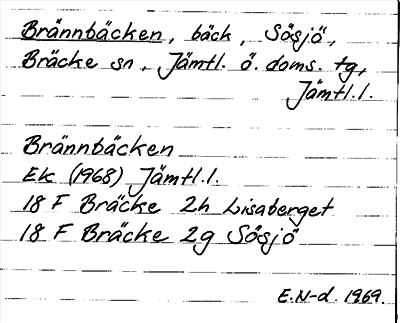 Brännbäcken, bäck, Sösjö,
Bräcke sn, Jämtl. ö. doms. tg,
Jämtl.l.
Brännbäcken
Ek (1968) Jämtl.l.
18 F Bräcke 2h Lisaberget
18 F Bräcke 2g Sösjö
E.N-d. 1969.